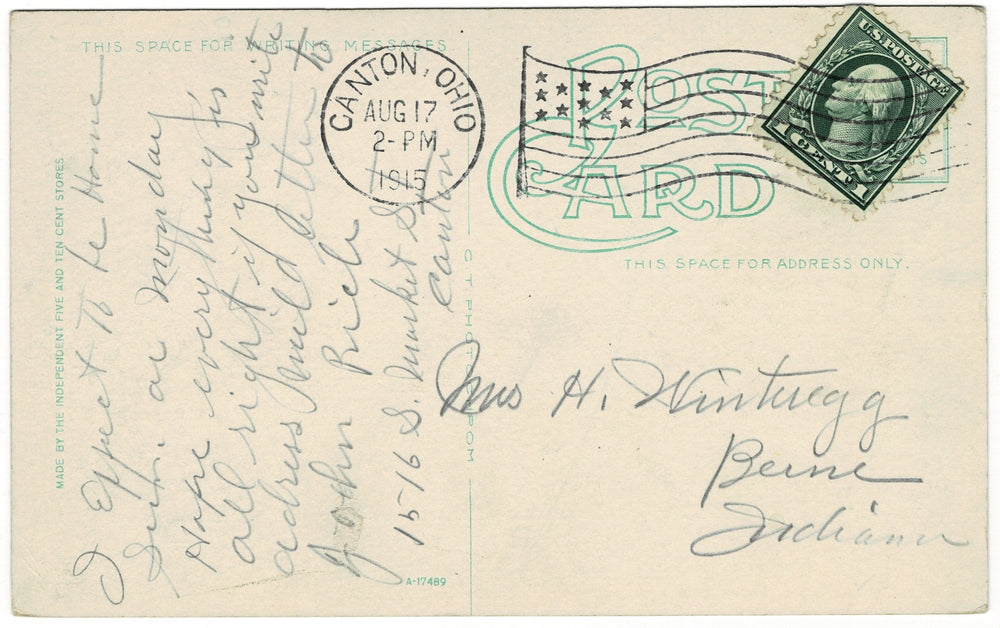 THIS SPACE FOR WRITING MESSAGES
I Expect To be Home
Sun. or Monday
Hope everything is
all right if you write
address letter to
John
1516 S. Market St
Canton
MADE BY THE INDEPENDENT FIVE AND TEN CENT STORES.
A-17489
CANTON, OHIO
AUG 17
2-PM
1915
POST CARD
U.S. POSTAGE
1 CENT 1
THIS SPACE FOR ADDRESS ONLY.
Mrs H. Winteregg
Berne
Indiana